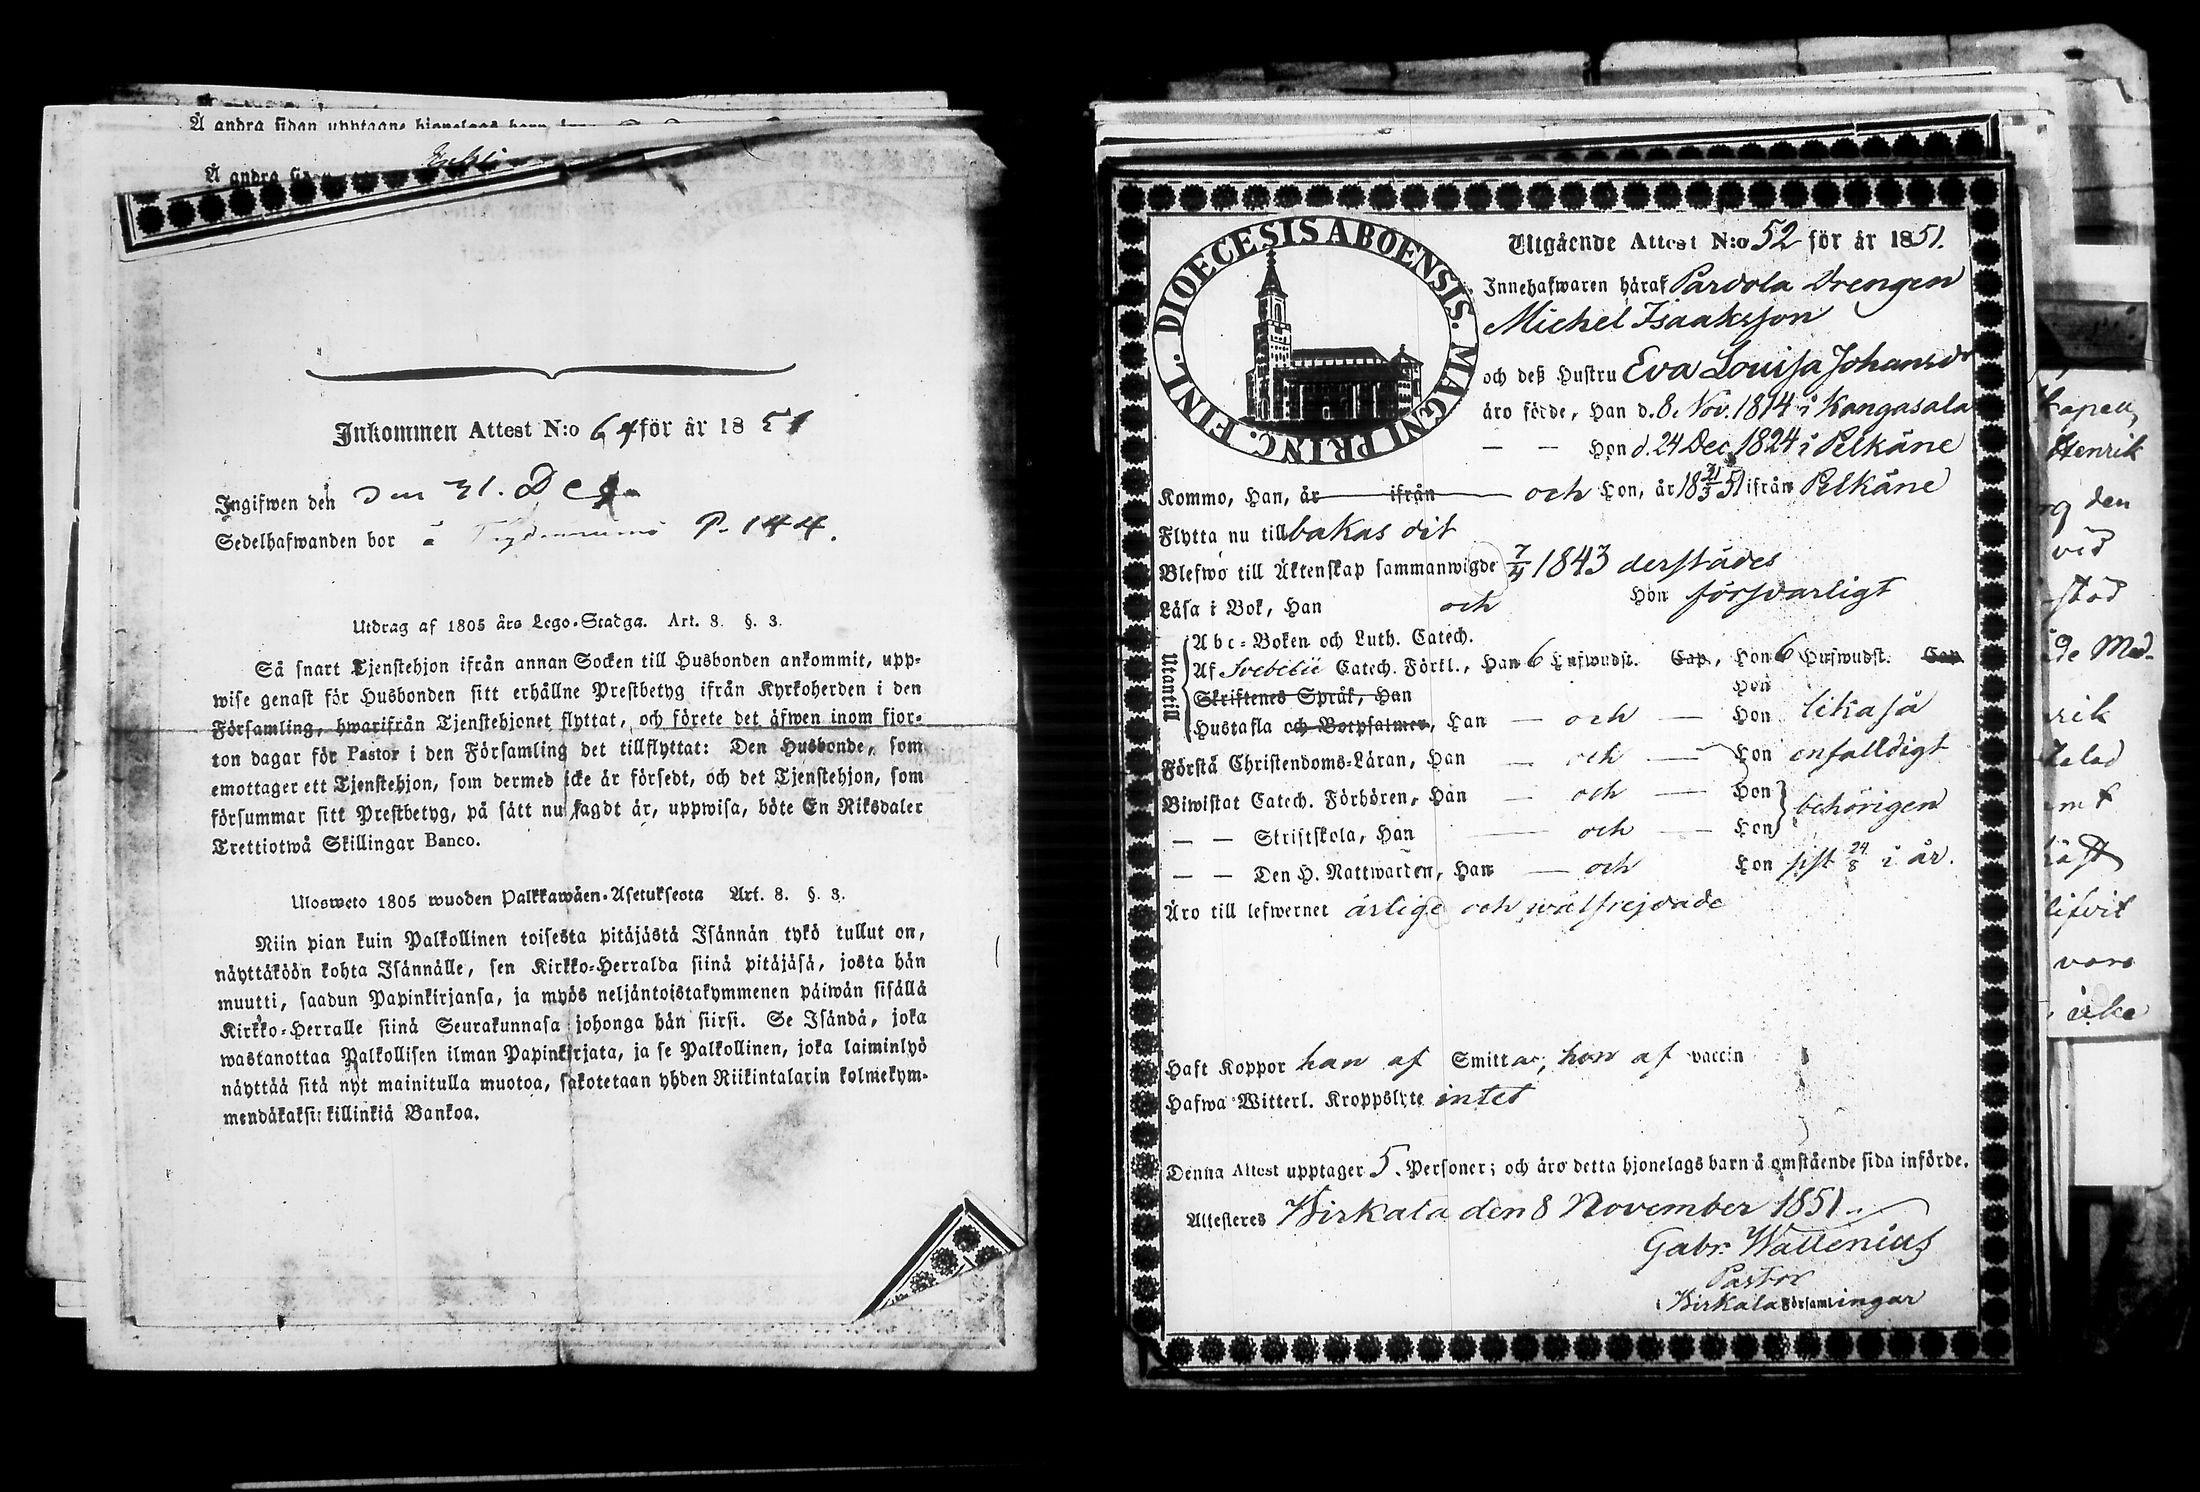 Å andra sidan upptagne hjonelags barn
Å andra
Inkommen Attest N:o 64 för år 1851
Ingifwen den Den 31. Dec
Sedelhafwanden bor å P. 144.
Utdrag af 1805 års Lego-Stadga. Art. 8. §. 3.
Så snart Tjenstehjon ifrån annan Socken till Husbonden ankommit, upp-
wise genast för Husbonden sitt erhållne Prestbetyg ifrån Kyrkoherden i den
Församling, hwarifrån Tjenstehjonet flyttat, och förete det äfwen inom fjor-
ton dagar för Pastor i den Församling det tillflyttat: Den Husbonde, som
emottager ett Tjenstehjon, som dermed icke är försedt, och det Tjenstehjon, som
försummar sitt Prestbetyg, på sätt nu sagdt är, uppwisa, böte En Riksdaler
Trettiotwå Skillingar Banco.
Ulosweto 1805 wuoden Palkkawäen-Asetuksesta Art. 8. §. 3.
Niin pian kuin Palkollinen toisesta pitäjästä Isännän tykö tullut on,
näyttäköön kohta Isännälle, sen Kirkko-Herralda siinä pitäjäsä, josta hän
muutti, saadun Papinkirjansa, ja myös neljäntoistakymmenen päiwän sisällä
Kirkko-Herralle siinä Seurakunnasa johonga hän siirsi. Se Isändä, joka
wastanottaa Palkollisen ilman Papinkirjata, ja se Palkollinen, joka laiminlyö
näyttää sitä nyt mainitulla muotoa, sakotetaan yhden Riikintalarin kolmekym-
mendäkaksi killinkiä Bankoa.
DIOECESIS ABOENSIS. MAGNI PRINC. FINL.
Utgående Attest N:o 52 för år 1851.
Innehafwaren häraf Pardola Drengen
Michel Isaaksson
och deß Hustru Eva Louisa Johansdr
äro födde, Han d. 8 Nov. 1814 i Kangasala
— — Hon d. 24 Dec. 1824 i Pelkäne
Kommo, Han, år ifrån och Hon, år 18 21/3 51 ifrån Pelkäne
Flytta nu tillbakas dit
Blefwo till Äktenskap sammanwigde 7/4 1843 derstädes
Läsa i Bok, Han och Hon försvarligt
Utantill
Abc-Boken och Luth. Catech.
Af Svebilii Catech. Förkl., Han 6 Hufwudst. Cap, Hon 6 Hufwudst. Cap
Skriftenes Språk, Han Hon
Hustafla och Botpsalmer, Han — och — Hon likaså
Förstå Christendoms-Läran, Han — och — Hon enfalldigt
Biwistat Catech. Förhören, Han — och — Hon behörigen
— — Skriftskola, Han — och — Hon
— — Den H. Nattwarden, Han — och Hon sist 24/8 i år.
Äro till lefwernet ärlige och wälfrejdade
Haft Koppor han af Smittas; hon af vaccin
Hafwa Witterl. Kroppslyte intet
Denna Attest upptager 5. Personer; och äro detta hjonelags barn å omstående sida införde.
Attesteres Birkala den 8 November 1851.
Gabr. Wallenius
Pastor
i Birkala Församlingar
Henrik
den
vid
rik
vara
icke